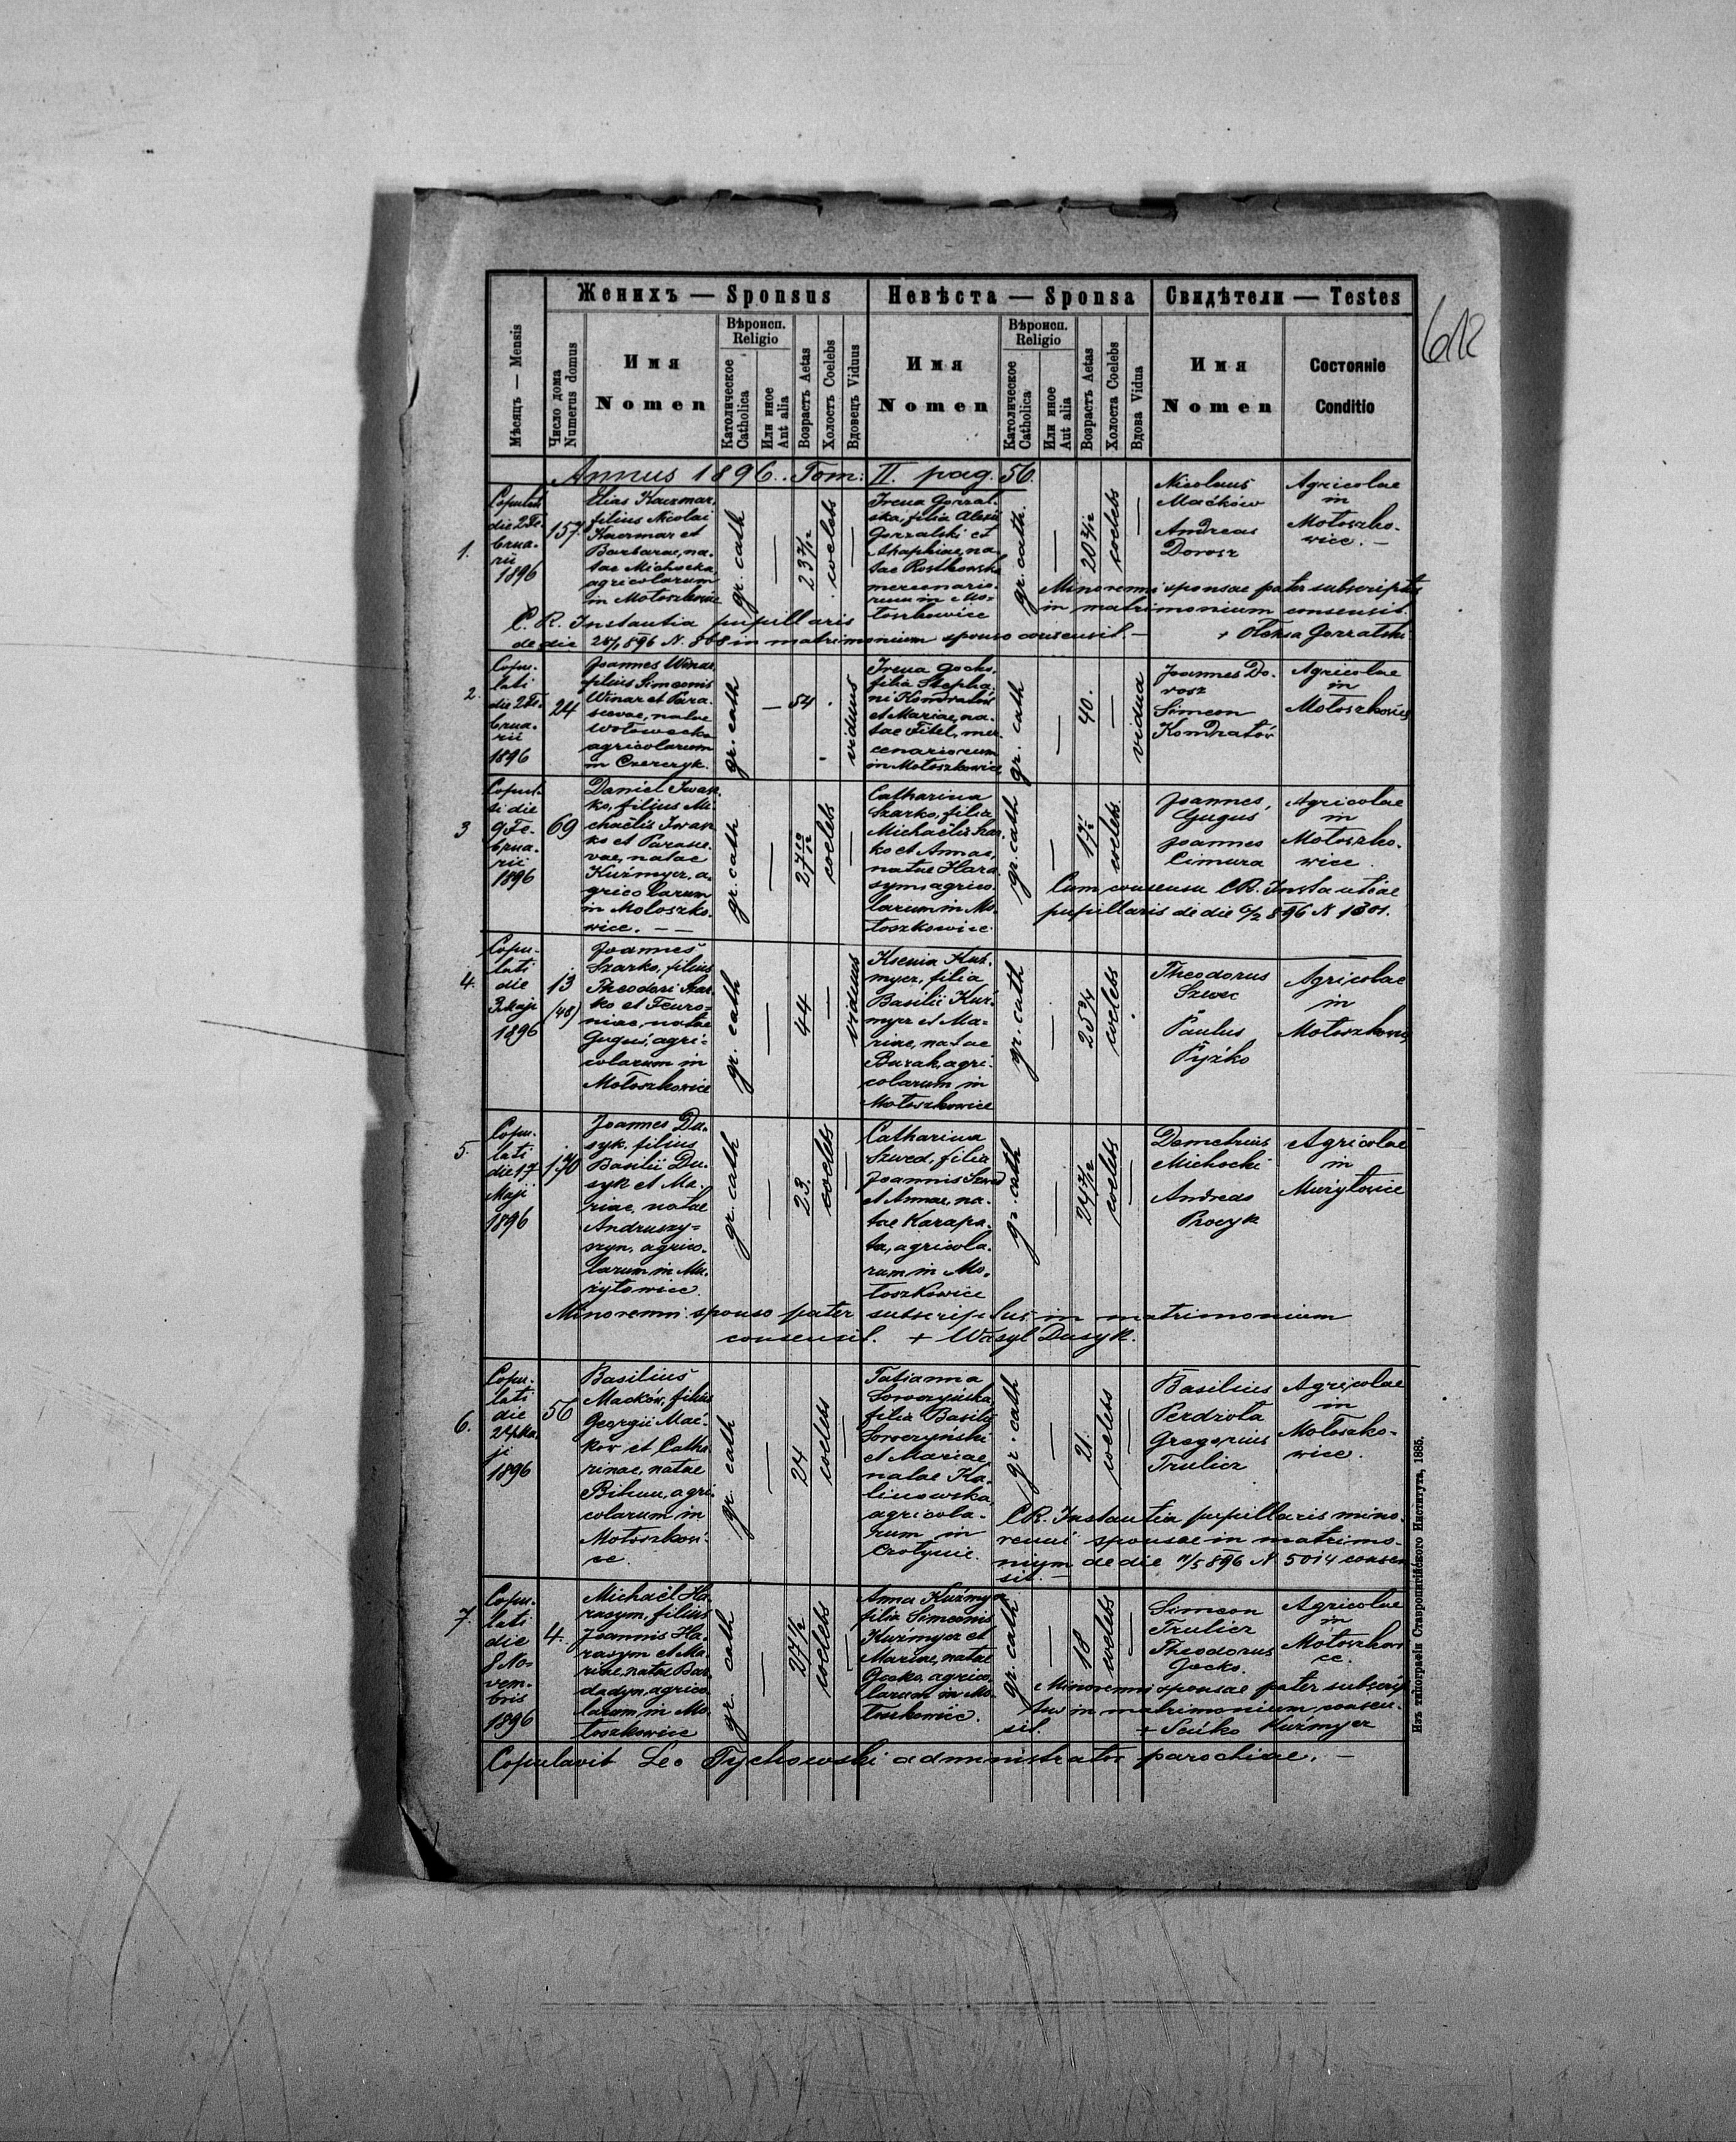 612
Женихъ — Sponsus
Невѣста — Sponsa
Свидѣтели — Testes
Мѣсяцъ — Mensis
Число дома
Numerus domus
Имя
Nomen
Вѣроисп.
Religio
Католическое
Catholica
Или иное
Aut alia
Возрастъ Aetas
Холостъ Coelebs
Вдовецъ Viduus
Имя
Nomen
Вѣроисп.
Religio
Католическое
Catholica
Или иное
Aut alia
Возрастъ Aetas
Холоста Coelebs
Вдова Vidua
Имя
Nomen
Состояніе
Conditio
Annus 1896. Tom: II. pag. 56.
1.
Copulati
die 2 Fe-
brua-
rii
1896
157
Elias Kaczmar,
filius Nicolai
Kaczmar et
Barbarae, na-
tae Michocka,
agricolarum
in Mołoszkowice
gr. cath
—
23 7/12
coelebs
—
Irena Gorzal-
ska, filia Alexii
Gorzalski et
Ahaphiae, na-
tae Rostkowska
mercenario-
rum in Mo-
łoszkowice
gr. cath.
—
20 3/12
coelebs
—
Nicolaus
Maćków
Andreas
Dorosz
Agricolae
in
Mołoszko-
wice. —
Minorenni sponsae pater subscriptus
in matrimonium consensit.
+ Oleksa Gorzalski
C. R. Instantia pupillaris
de die 24/1 896 N. 808 in matrimonium sponso consensit. —
2.
Copu-
lati
die 2 Fe-
brua-
rii
1896
24
Joannes Winar,
filius Simeonis
Winar et Para-
scevae, natae
Wołowecka
agricolarum
in Czerczyk.
gr. cath
—
54
viduus
Irena Gocko,
filia Stepha-
ni Kondratów
et Mariae, na-
tae Fitel, mer-
cenariorum
in Mołoszkowice
gr. cath
—
40.
—
vidua
Joannes Do-
rosz
Simeon
Kondratów
Agricolae
in
Mołoszkowice
3
Copula-
ti die
9 Fe-
brua-
rii
1896
69
Daniel Iwan-
ko, filius Mi-
chaëlis Iwan-
ko et Parasce-
vae, natae
Kuźmyer, a-
gricolarum
in Mołoszko-
wice. — —
gr. cath
—
27 10/12
coelebs
—
Catharina
Szarko, filia
Michaëlis Szar-
ko et Annae,
natae Hara-
sym, agrico-
larum in Mo-
łoszkowice
gr. cath
—
coelebs.
Joannes
Guguś
Joannes
Cimura
Agricolae
in
Mołoszko-
wice
Cum consensu CR. Instantiae
pupillaris de die 6/2 896 N 1301.
4.
Copu-
lati
die
3 Maji
1896
13
(48)
Joannes
Szarko, filius
Theodori Szar-
ko et Feuro-
niae, natae
Guguś, agri-
colarum in
Mołoszkowice
gr. cath
—
44
—
viduus
Ksenia Kuź-
myer, filia
Basilii Kuź-
myer et Ma-
riae, natae
Burak, agri-
colarum in
Mołoszkowice
gr. cath
—
25 3/4
coelebs
Theodorus
Szwec
Paulus
Pyżko
Agricolae
in
Mołoszkowice
5.
Copu-
lati
die 17
Maji
1896
170
Joannes Du-
syk, filius
Basilii Du-
syk et Ma-
riae, natae
Andruszy-
szyn, agrico-
larum in Mu-
żyłowice
gr. cath
—
23.
coelebs
—
Catharina
Szwed, filia
Joannis Szwed
et Annae, na-
tae Karapa-
ta, agricola-
rum in Mo-
łoszkowice
gr. cath
—
24 7/12
coelebs
—
Demetrius
Michocki
Andreas
Procyk
Agricolae
in
Mużyłowice
Minorenni sponso pater subscriptus in matrimonium
consensit. + Wasyl Dusyk.
6.
Copu-
lati
die
24 Ma-
ji
1896
56
Basilius
Maćków, filius
Georgii Mać-
ków et Catha-
rinae, natae
Bihun, agri-
colarum in
Mołoszkowi-
ce.
gr. cath
—
24
coelebs
—
Tatianna
Soroczyńska
filia Basilii
Soroczyński
et Mariae,
natae Ka-
linowska,
agricola-
rum in
gr. cath
—
21.
coelebs
—
Basilius
Perdziota
Gregorius
Trulicz
Agricolae
in
Mołoszko-
wice.
CR. Instantia pupillaris mino-
renni sponsae in matrimo-
nium de die 11/5 896 N 5014 consen-
sit. —
7.
Copu-
lati
die
8 No-
vem-
bris
1896
4.
Michaël Ha-
rasym, filius
Joannis Ha-
rasym et Ma-
riae, natae Ban-
dadyn, agrico-
larum in Mo-
łoszkowice
gr. cath
—
27 1/2
coelebs
—
Anna Kuźmyer
filia Simeonis
Kuźmyer et
Mariae, natae
Gocko, agrico-
larum in Mo-
łoszkowice.
gr. cath
—
18
coelebs
—
Simeon
Trulicz
Theodorus
Gocko.
Agricolae
in
Mołoszkowi-
ce.
Minorenni sponsae pater subscrip-
tus in matrimonium consen-
sit. + Seńko Kuźmyer
Copulavit Leo Tychowski administrator parochiae. —
Изъ типографіи Ставропигійского Института, 1885.